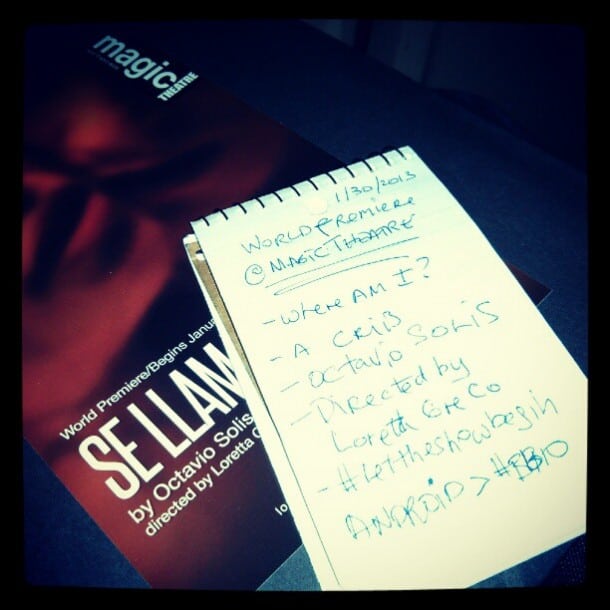 magic
THEATRE
World Premiere/Begins Janua
SE LLAM
by Octavio Solis
directed by Loretta G
lo
1/30/2013
WORLD PREMIERE
@MAGICTHEATRE
- WHERE AM I?
- A CRIB
- OCTAVIO SOLIS
- Directed by
Loretta GreCo
- #lettheshowbegin
ANDROID > #BB10